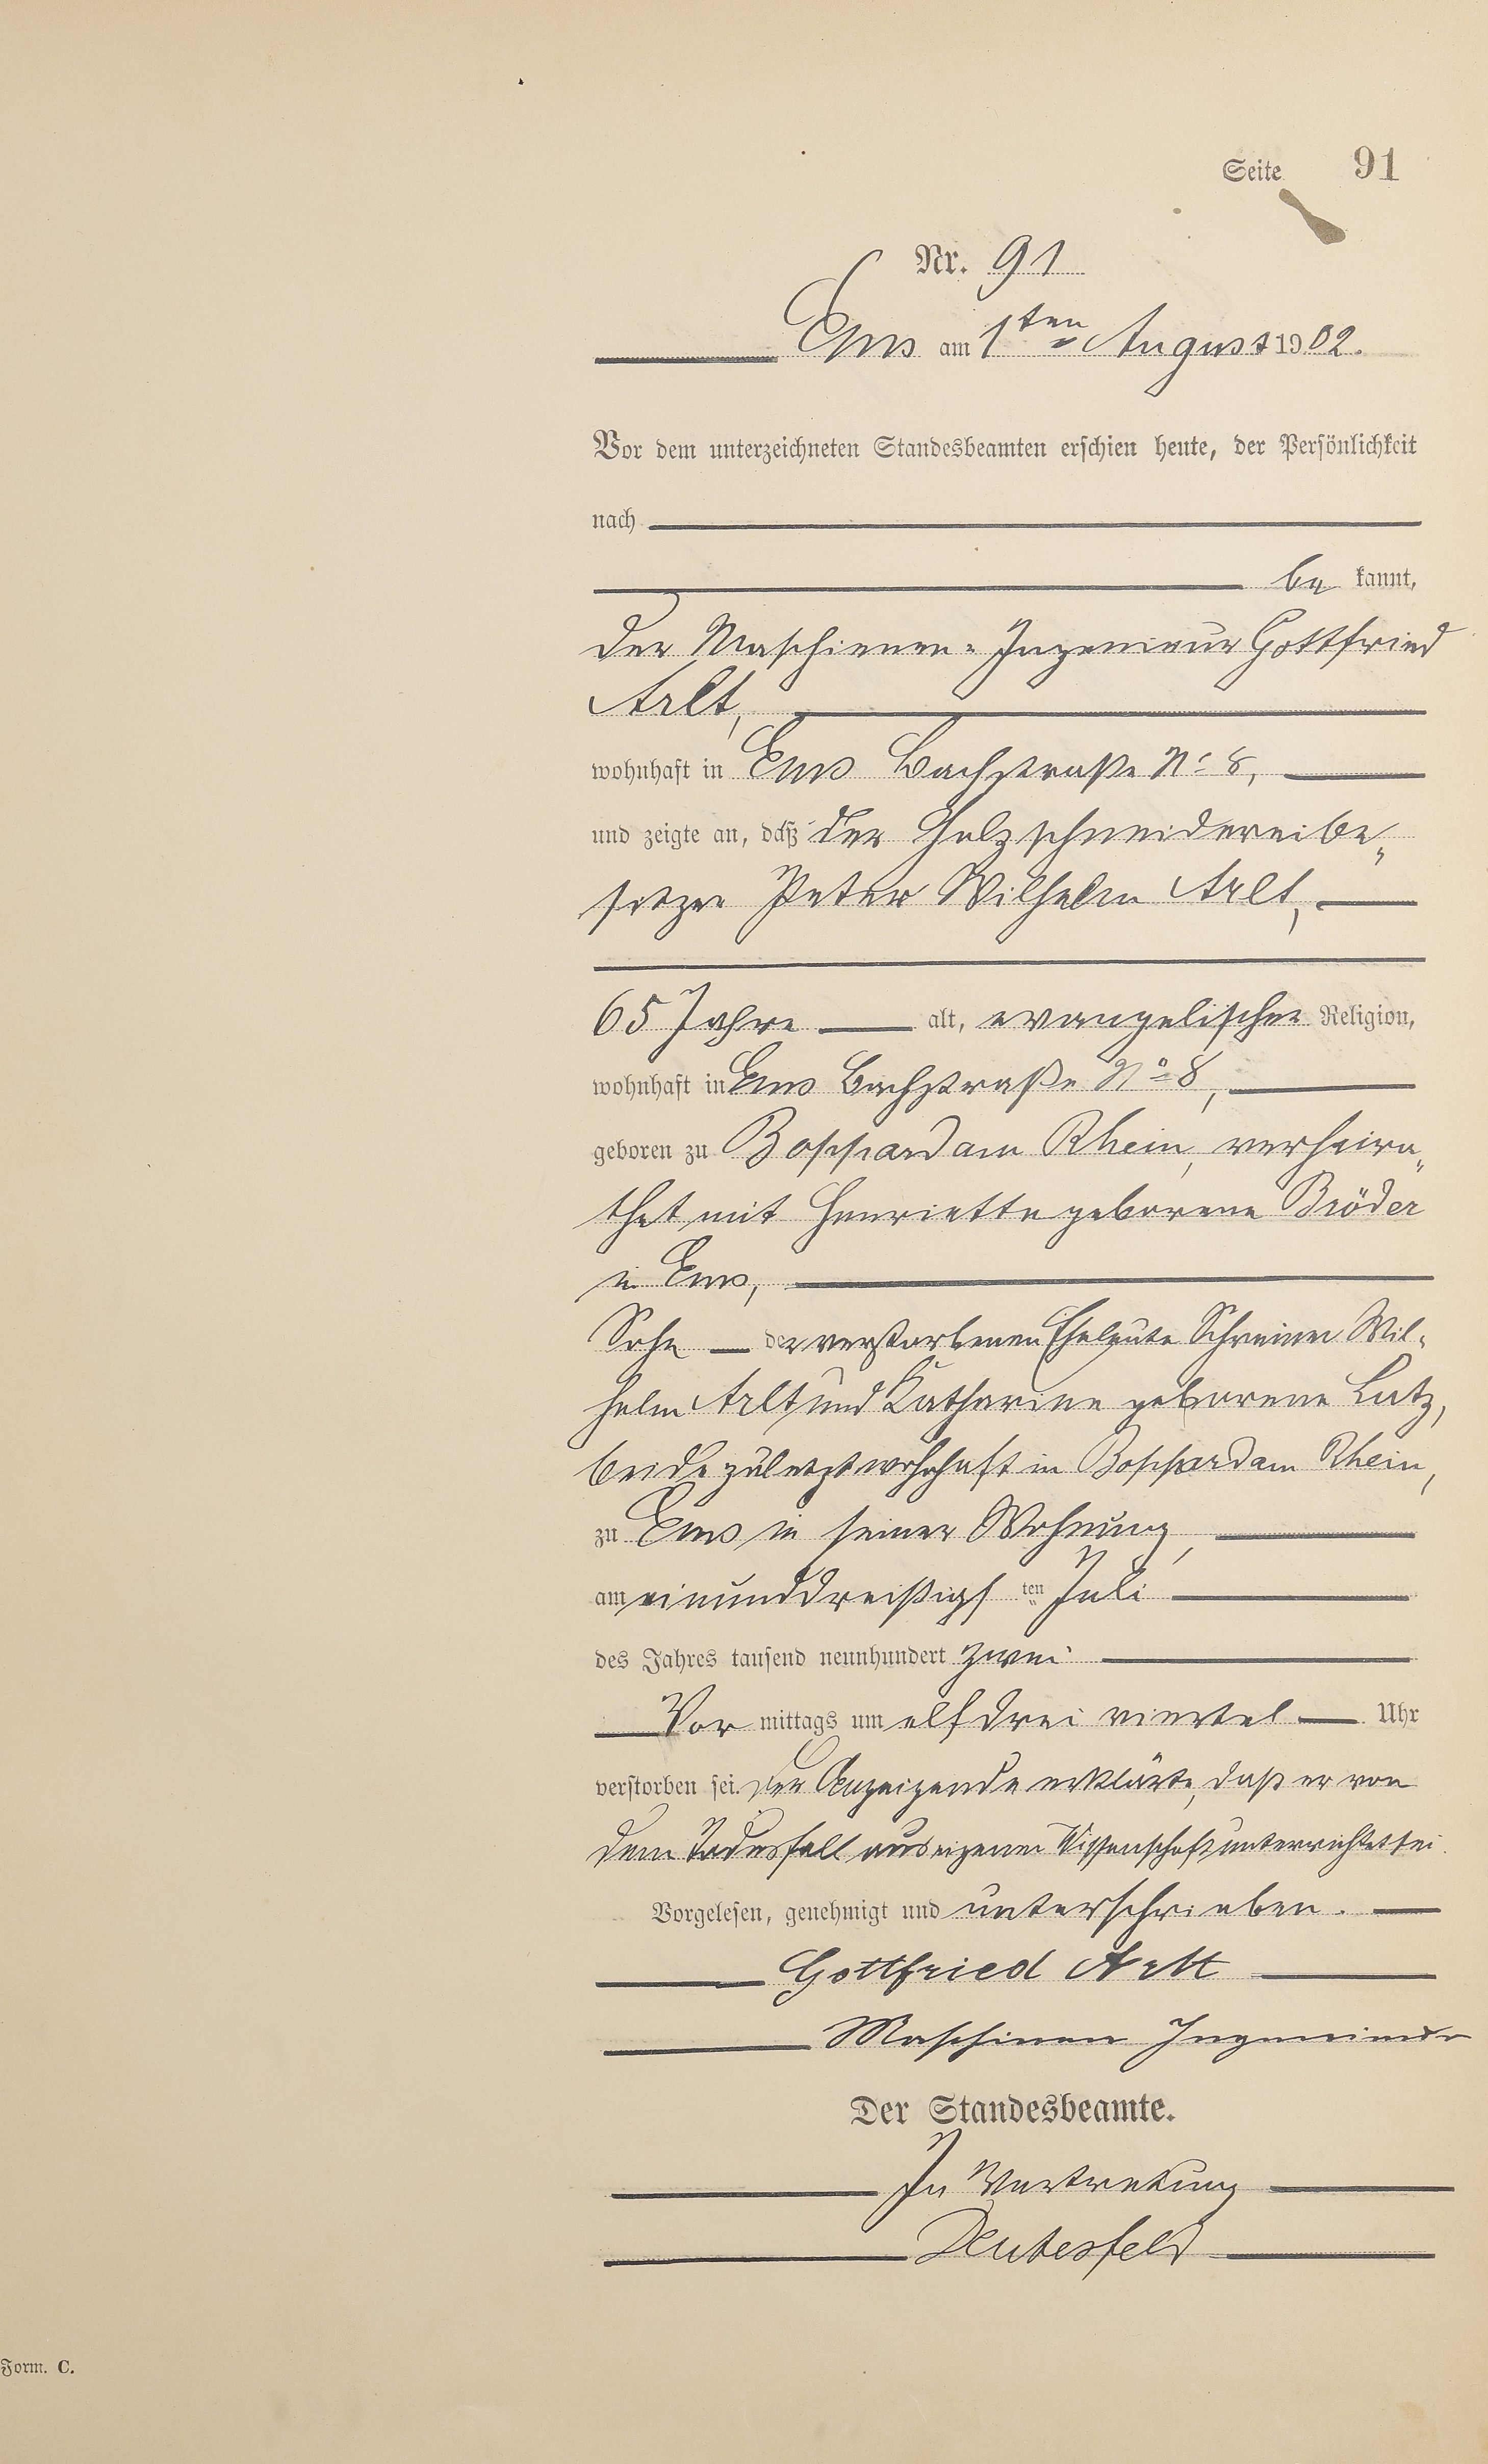 Seite 91
Nr. 91
Ems am 1ten August 1902.
Vor dem unterzeichneten Standesbeamten erschien heute, der Persönlichkeit
nach
be kannt,
der Maschienen-Ingenieur Gottfried
Arlt,
wohnhaft in Ems Bachstraße No 8,
und zeigte an, daß der Holzschneidereibe„
sitzer Peter Wilhelm Arlt,
65 Jahre alt, evangelischer Religion,
wohnhaft in Ems Bachstraße No 8,
geboren zu Boppard am Rhein, verheira„
thet mit Henriette geborene Bröder
in Ems,
Sohn der verstorbenen Eheleute Schreiner Wil-
helm Arlt und Katharine geborene Latz,
beide zuletzt wohnhaft in Boppard am Rhein,
zu Ems in seiner Wohnung,
am einunddreißigsten Juli
des Jahres tausend neunhundert zwei
Vor mittags um elf drei viertel Uhr
verstorben sei. Der Anzeigende erklärte, daß er von
dem Todesfall aus eigener Wissenschaft unterrichtet sei.
Vorgelesen, genehmigt und unterschrieben.
Gottfried Arlt
Maschinen Ingenieur
Der Standesbeamte.
In Vertretung
Deutesfeld
Form. C.